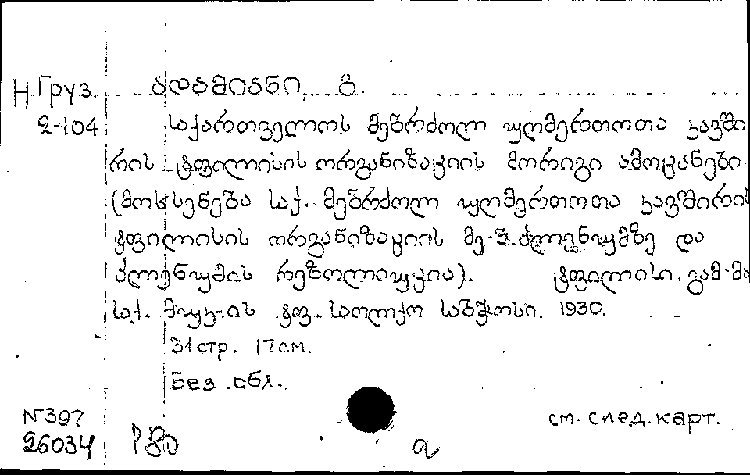 Н.Груз. ადამიანი, ვ.
2-104 საქართველოს მებრძოლ უღმერთოთა კავში
რის ტფილისის ორგანიზაციის მორიგი ამოცანები
(მოხსენება საქ. მებრძოლ უღმერთოთა კავშირის
ტფილისის ორგანიზაციის მე-3 პლენუმზე და
პლენუმის რეზოლიუცია). ტფილისი, გამ-მა
საქ. ტფ. სახალხო საბჭოსი. 1930.
31 стр. 17 см.
Без обл.
N397 см. след. карт.
26034